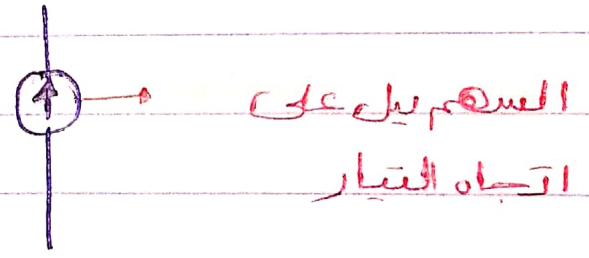 السهم يدل على
اتجاه التيار